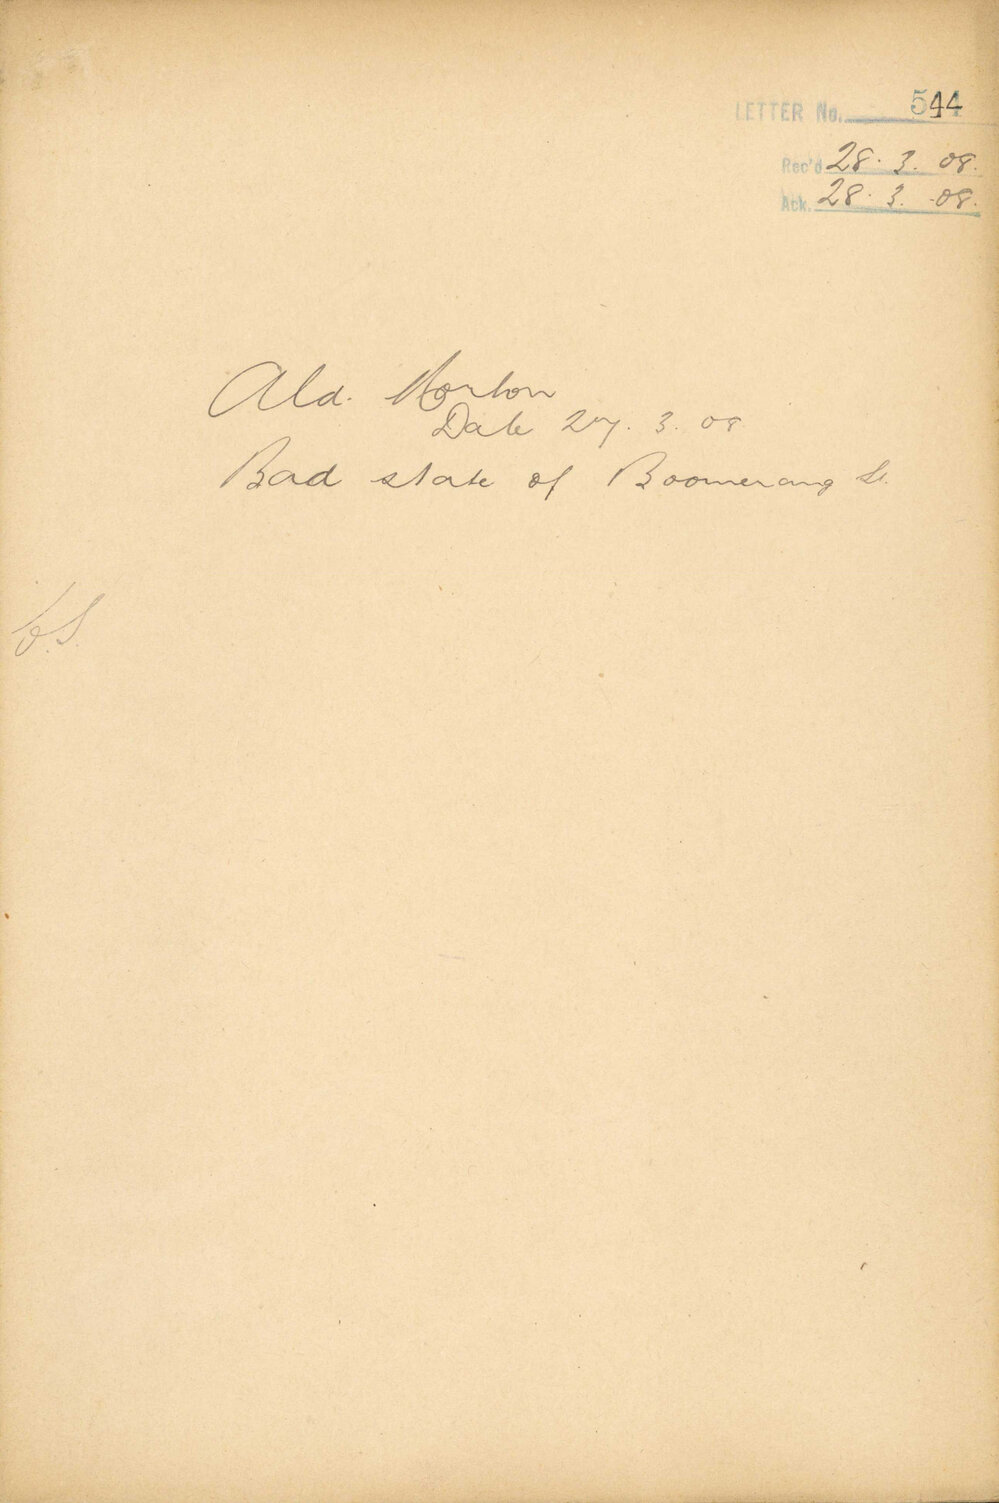 LETTER No. 544
Rec'd 28. 3. 08.
Ack. 28. 3. 08.
Ald. Horton
Date 27. 3. 08
Bad state of Boomerang St.